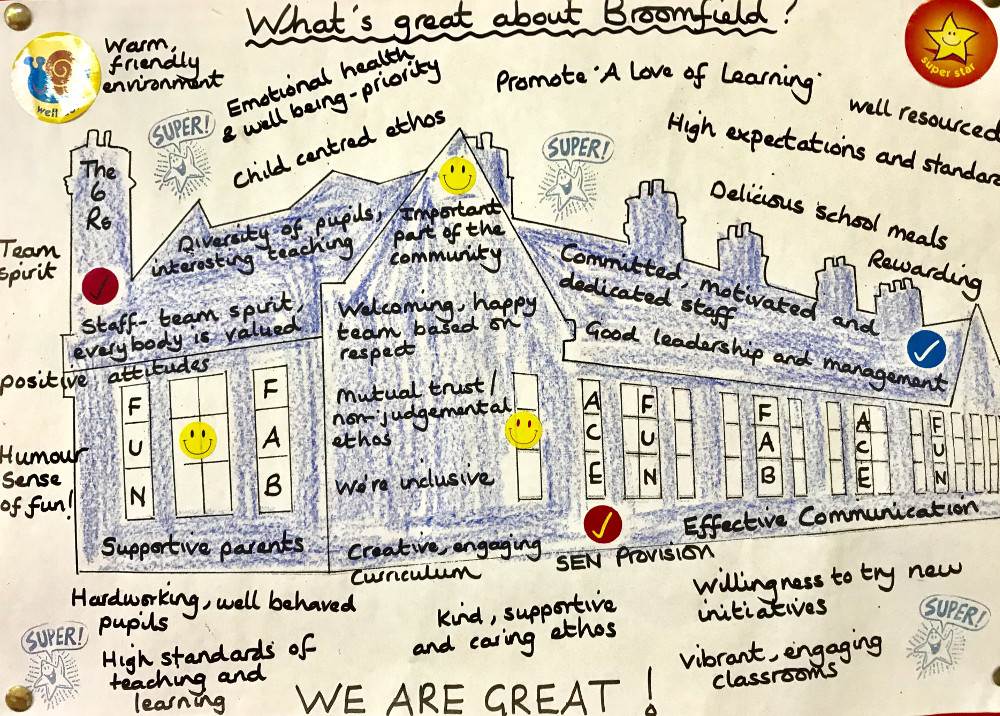 What's great about Broomfield?
Warm,
friendly
environment
well
Emotional health
& well being-priority
Child centred ethos
SUPER!
Promote 'A Love of Learning'
super star
well resourced
High expectations and standard
SUPER!
Delicious school meals
Rewarding
The
6
Rs
Team
spirit
Diversity of pupils,
interesting teaching
Important
part of the
community
Committed, motivated and
dedicated staff
Good leadership and management
Staff- team spirit,
everybody is valued
Welcoming, happy
team based on
respect
positive attitudes
Mutual trust/
non-judgemental
ethos
We're inclusive
FUN
FAB
ACE
FUN
FAB
ACE
FUN
Humour
Sense
of fun!
Supportive parents
Creative, engaging
Curriculum
SEN Provision
Effective Communication
Hardworking, well behaved
pupils
Kind, supportive
and caring ethos
Willingness to try new
initiatives
SUPER!
High standards of
teaching and
learning
Vibrant, engaging
classrooms
SUPER!
WE ARE GREAT!